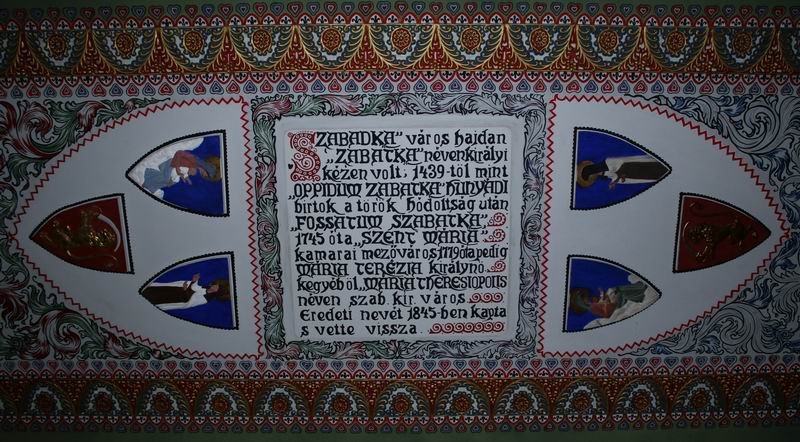 SZABADKA” város hajdan
„ZABATKA” néven királyi
kézen volt, 1439-től mint
„OPPIDUM ZABATKA” HUNYADI
birtok a török hódoltság után
„FOSSATUM SZABATKA„
1745 óta „SZENT MÁRIA„
kamarai mezőváros 1779 óta pedig
MÁRIA TERÉZIA királynő
kegyéből „MARIA THERESIOPOLIS
néven szab. kir. város.
Eredeti nevét 1845-ben kapta
s vette vissza.